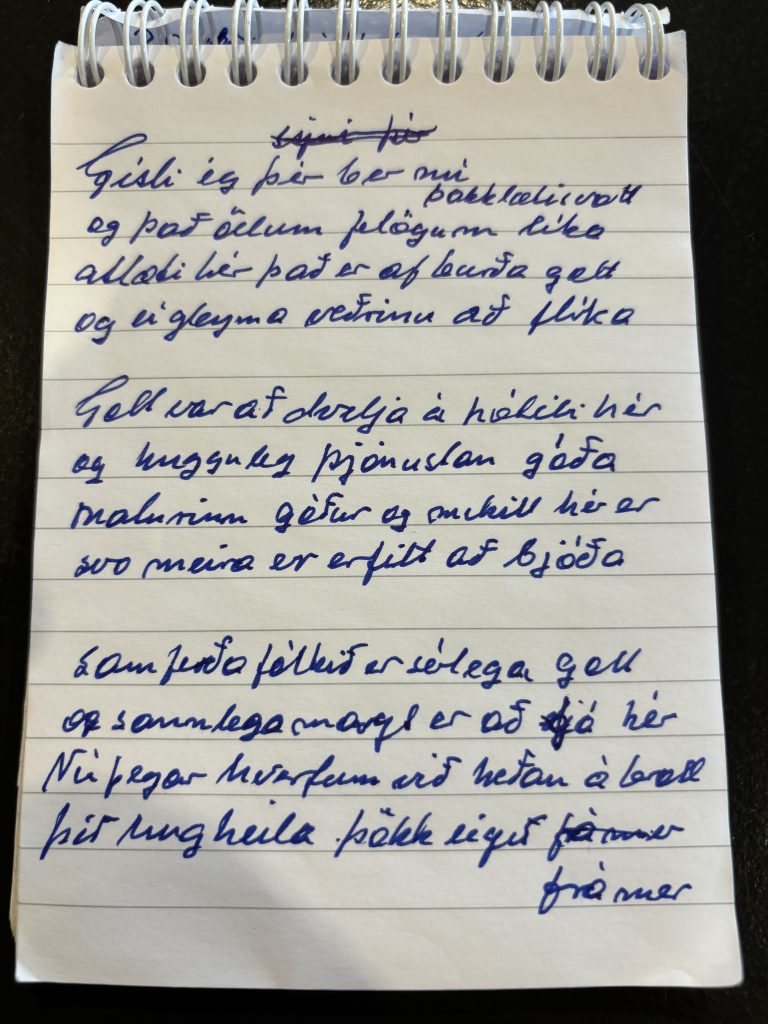 Gísli ég þér ber nú
þakklætisvott
og það öllum félögum líka
atlæti hér það er afburða gott
og ei gleyma veðrinu að flíka
Gott var að dvelja á hóteli hér
og hugguleg þjónustan góða
maturinn góður og mikill hér er
svo meira er erfitt að bjóða
samferðafólkið er sérlega gott
og sannlega margt er að sjá hér
Nú þegar hverfum við héðan á brott
þið hugheila þökk eigið
frá mér